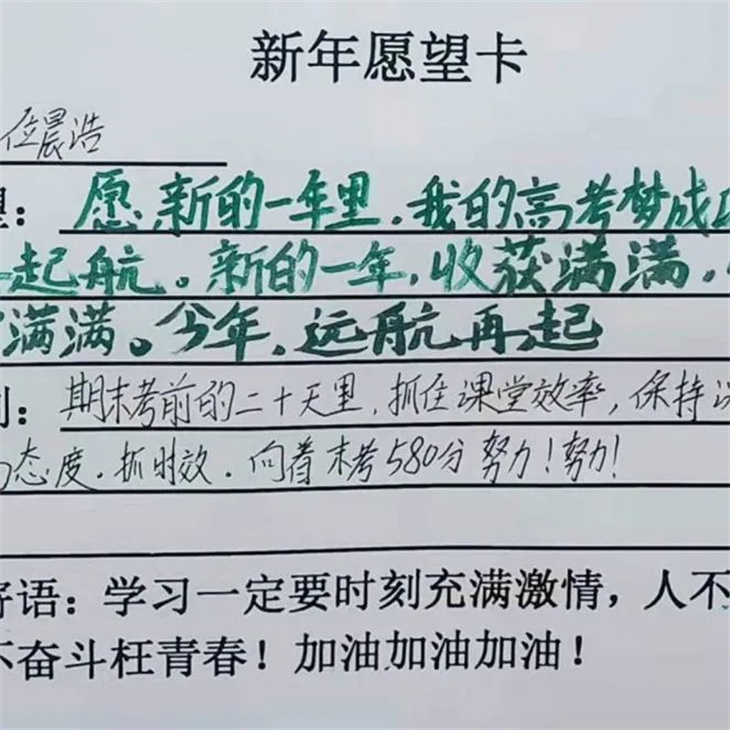 新年愿望卡
位晨浩
望：愿新的一年里，我的高考梦成
起航。新的一年，收获满满，
满满。今年，远航再起
划：期末考前的二十天里，抓住课堂效率，保持
态度，抓时效，向着末考580分努力！努力！
寄语：学习一定要时刻充满激情，人不
不奋斗枉青春！加油加油加油！